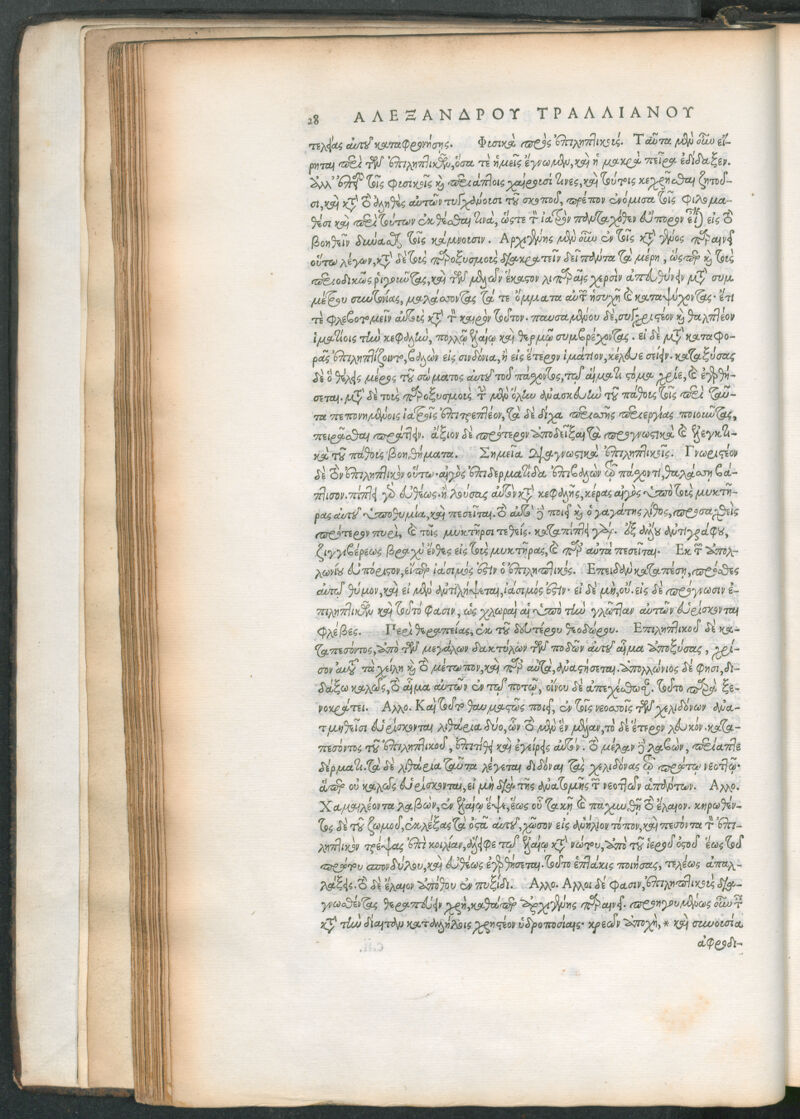 28 ΑΛΕΞΑΝΔΡΟΥ ΤΡΑΛΛΙΑΝΟΥ
τελείας αὐτοῦ καταφρονήσης. Φυσικὰ πρὸς ἐπιληπτικούς. Ταῦτα μὲν οὖν εἴ-
ρηται περὶ τῶν ἐπιληπτικῶν, ὅσα τὲ ἡμεῖς ἔγνωμεν, καὶ ἡ μακρὰ πεῖρα ἐδίδαξεν.
ἀλλ' ἐπεὶ τοῖς φυσικοῖς καὶ περιάπτοις χαίρουσί τινες, καὶ τούτοις κεχρῆσθαι ζητοῦ-
σι, καὶ κατὰ τὸ ἀληθὲς αὐτῶν τυγχάνουσι τοῦ σκοποῦ, πρέπον ἐνόμισα τοῖς φιλομα-
θέσι καὶ περὶ τούτων ἐκθέσθαι τινὰ, ὥστε τὸν ἰατρὸν πανταχόθεν εὔπορον εἶναι εἰς τὸ
βοηθεῖν δύνασθαι τοῖς κάμνουσιν. Ἀρχιγένης μὲν οὖν ἐν τοῖς κατὰ γένος παραινεῖ
οὕτω λέγων, κατὰ δὲ τοὺς παροξυσμοὺς διακρατεῖν δεῖ πάντα τὰ μέρη, ὥσπερ καὶ τοὺς
περιοδικῶς ῥιγοῦντας, καὶ τῶν μελῶν ἕκαστον λιπαραῖς χερσὶν ἀπευθύνειν μετὰ συμ
μέτρου συντονίας, μαλάσσοντας τά τε ὄμματα αὐτῶν ἡσυχῆ καὶ καταψύχοντας· ἔτι
τὲ φλεβοτομεῖν αὐτοὺς κατὰ τὸν καιρὸν τοῦτον. παυσαμένου δὲ, συγχριστέον καὶ θαλπτέον
ἱματίοις τὴν κεφαλὴν, πολλῷ ἐλαίῳ καὶ θερμῷ συμβρέχοντας. εἰ δὲ μετὰ καταφο-
ρᾶς ἐπιληπτίζοιντο, βαλὼν εἰς σινδόνια, ἢ εἰς ἕτερον ἱμάτιον, κέλευε σείειν. καταξύσας
δὲ ὃ θέλεις μέρος τοῦ σώματος αὐτοῦ τοῦ πάσχοντος, τῷ αἵματι στόμα χρῖε, καὶ ἐγερθή-
σεται. μετὰ δὲ τοὺς παροξυσμοὺς τὴν μὲν ὅλην ἀνασκευὴν τοῦ πάθους τοῖς περὶ ταῦ-
τα πεπονημένοις ἰατροῖς ἐπιτρεπτέον, τὰ δὲ δίχα περισσῆς περιεργίας ποιοῦντας,
πειρᾶσθαι πράττειν. ἄξιον δὲ πρότερον ἀποδεῖξαι τὰ προγνωστικὰ καὶ ἐλεγκτι-
κὰ τοῦ πάθους βοηθήματα. Σημεῖα διαγνωστικὰ ἐπιληπτικοῖς. Γνωριστέον
δὲ τὸν ἐπιληπτικὸν οὕτω· αἰγὸς ἐπιδερματίδα ἐπιβαλὼν τῷ πάσχοντι, θαλάσσῃ βά-
πτισον. πίπτει γὰρ εὐθέως. ἢ λούσας αὐτὸν κατὰ κεφαλῆς, κέρας αἰγὸς ὑπὸ τοὺς μυκτῆ-
ρας αὐτοῦ ὑποθυμία, καὶ πεσεῖται. τὸ αὐτὸ δὲ ποιεῖ καὶ ὁ γαγάτης λίθος, προσαχθεὶς
πρότερον πυρὶ, καὶ τοῖς μυκτῆρσι τεθείς. καταπίπτει γάρ. ἐξ ἄλλου ἀντιγράφου,
ζιγγιβέρεως βραχὺ ἔνθες εἰς τοὺς μυκτῆρας, καὶ παρ' αὐτὰ πεσεῖται. Ἐκ τῶν Ἀπολ-
λωνίου εὐπόριστον, εἴπερ ἰάσιμός ἐστιν ὁ ἐπιληπτικός. Ἐπειδὰν καταπέσῃ, πρόσθες
αὐτῷ θύμον, καὶ εἰ μὲν ἀντιλήψεται, ἰάσιμός ἐστιν· εἰ δὲ μὴ, οὔ. εἰς δὲ πρόγνωσιν ἐ-
πιληπτικῶν καὶ τοῦτό φασιν, ὡς χλωραὶ αἱ ὑπὸ τὴν γλῶτταν αὐτῶν εὑρίσκονται
φλέβες. Περὶ θεραπείας, ἐκ τοῦ δευτέρου θεοδώρου. Ἐπιληπτικοῦ δὲ κα-
ταπεσόντος, ἀπὸ τῶν μεγάλων δακτύλων τῶν ποδῶν αὐτοῦ αἷμα ἀποξύσας, χρί-
σον αὐτοῦ τὰ χείλη καὶ τὸ μέτωπον, καὶ παρ' αὐτὰ, ἀναστήσεται. ἀπολλώνιος δέ φησι, δι-
δάξω καλῶς, τὸ αἷμα αὐτῶν ἐν τῷ ποτῷ, οἴνου δὲ ἀπεχέσθωσαν. τοῦτο παρὰ ξε-
νοκράτει. Ἄλλο. Καὶ τοῦτο θαυμαστῶς ποιεῖ, ἐν τοῖς νεοσσοῖς τῶν χελιδόνων ἀνα-
τμηθεῖσι εὑρίσκονται λιθάρια δύο, ὧν τὸ μὲν ἓν μέλαν, τὸ δὲ ἕτερον λευκόν. κατα-
πεσόντος τοῦ ἐπιληπτικοῦ, ἐπιτίθει καὶ ἐγείρεις αὐτόν. τὸ μέλαν δὲ λαβὼν, περίαπτε
δέρματι. τὰ δὲ λιθάρια ταῦτα λέγεται διδόναι τὰς χελιδόνας τῷ πρώτῳ νεοττῷ·
ἅπερ οὐ καλῶς εὑρίσκονται, εἰ μὴ διὰ τῆς ἀνατομῆς τῶν νεοττῶν ἁπάντων. Ἄλλο.
Χαμαιλέοντα λαβὼν, ἐν ἐλαίῳ ἕψε, ἕως οὗ τακῇ καὶ παχυνθῇ τὸ ἔλαιον. κηρωθέν-
τος δὲ τοῦ ζωμοῦ, ἐκλέξας τὰ ὀστᾶ αὐτοῦ, χῶσον εἰς ἀνήλιον τόπον, καὶ πεσόντα τὸν ἐπι-
ληπτικὸν τρέψας ἐπὶ κοιλίαν, ἄλειφε τῷ ἐλαίῳ κατὰ νώτου, ἀπὸ τοῦ ἱεροῦ ὀστοῦ ἕως τοῦ
πρώτου σπονδύλου, καὶ εὐθέως ἐγερθήσεται. τοῦτο ἑπτάκις ποιήσας, τελέως ἀπαλ-
λάξεις. τὸ δὲ ἔλαιον ἀπόθου ἐν πυξίδι. Ἄλλο. Ἄλλοι δέ φασιν, ἐπιληπτικοὺς δια-
γνωσθέντας θεραπεύειν χρὴ, καθάπερ ἀρχιγένης παραινεῖ. προηγουμένως οὖν τῶν
κατὰ τὴν δίαιταν καταλλήλοις χρηστέον ὑδροποσίαις· κρεῶν ἀποχὴ, * καὶ συνουσία
ἀφροδι-